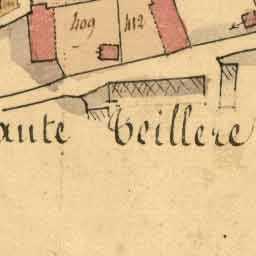 409 412
aute Teillere